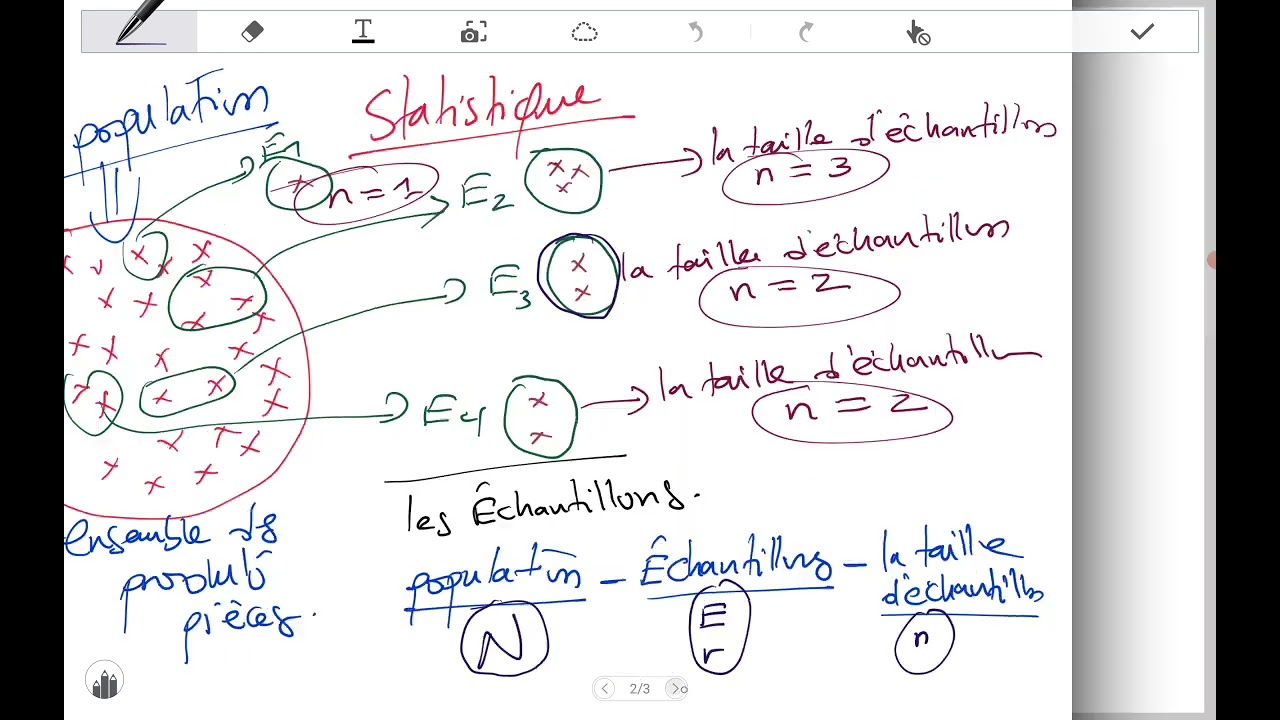 T
population
Statistique
E1
n = 1
E2
la taille d'échantillon
n = 3
E3
la taille d'échantillon
n = 2
E4
la taille d'échantillon
n = 2
les Échantillons.
ensemble ds
produits
pièces.
population - Échantillons - la taille
d'échantillon
N
E
r
n
2/3